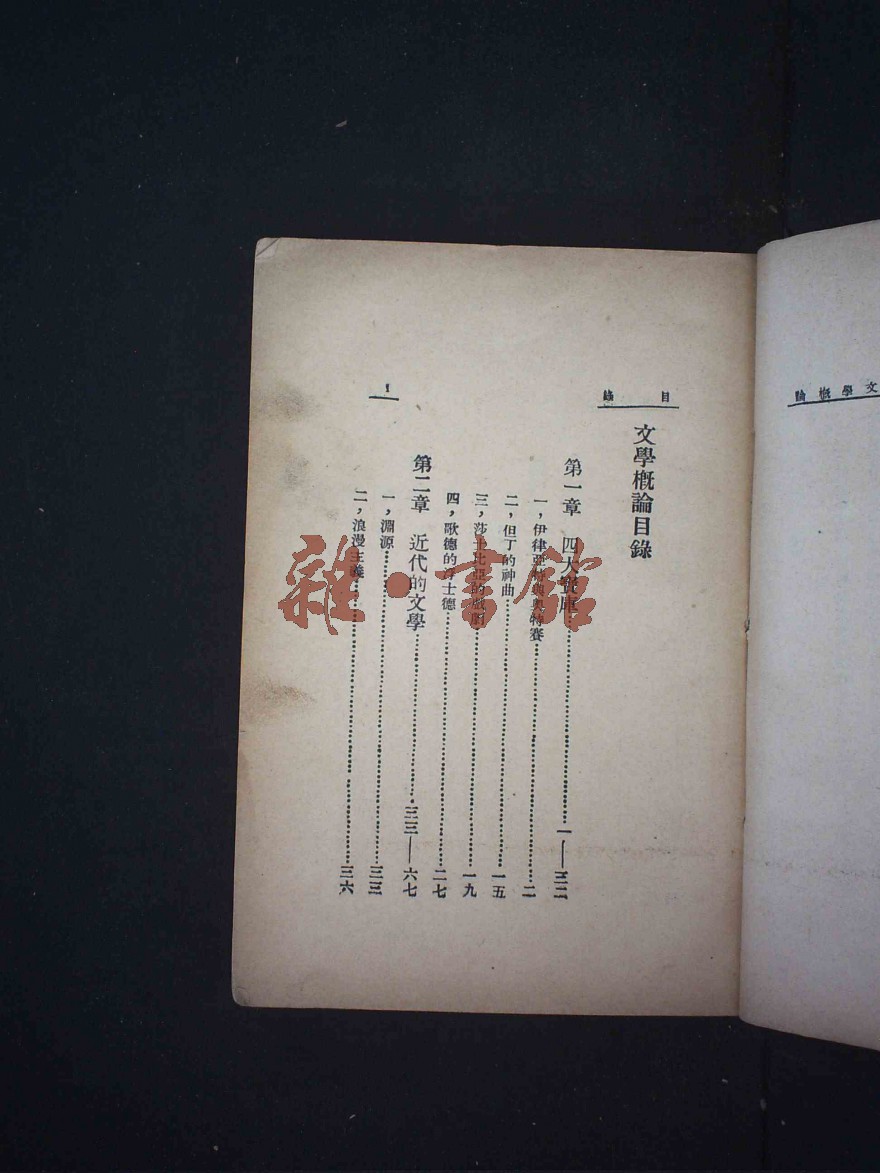 文學概論
目錄
文學概論目錄
第一章 四大寶庫……一——三二
一，伊律亞特與奧特賽……二
二，但丁的神曲……一五
三，莎士比亞的戲劇……一九
四，歌德的浮士德……二七
第二章 近代的文學……三三——六七
一，淵源……三三
二，浪漫主義……三六
1
雜·書館